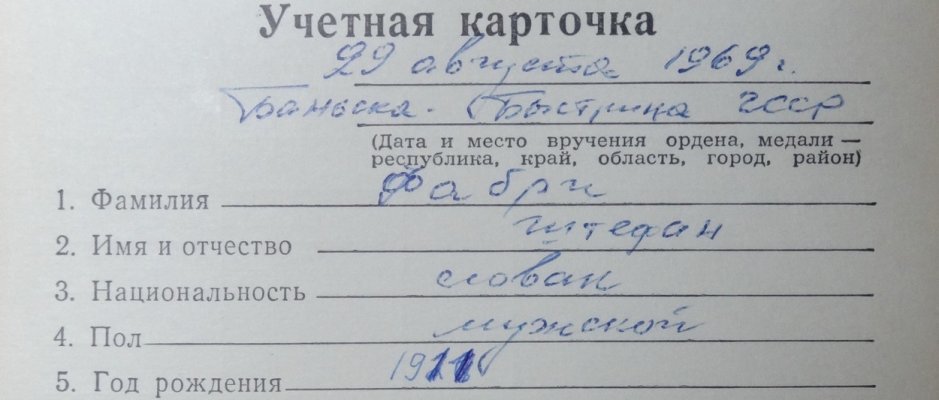 Учетная карточка
29 августа 1969 г.
Баньска-Быстрица ЧССР
(Дата и место вручения ордена, медали —
республика, край, область, город, район)
1. Фамилия Фабри
2. Имя и отчество Штефан
3. Национальность словак
4. Пол мужской
5. Год рождения